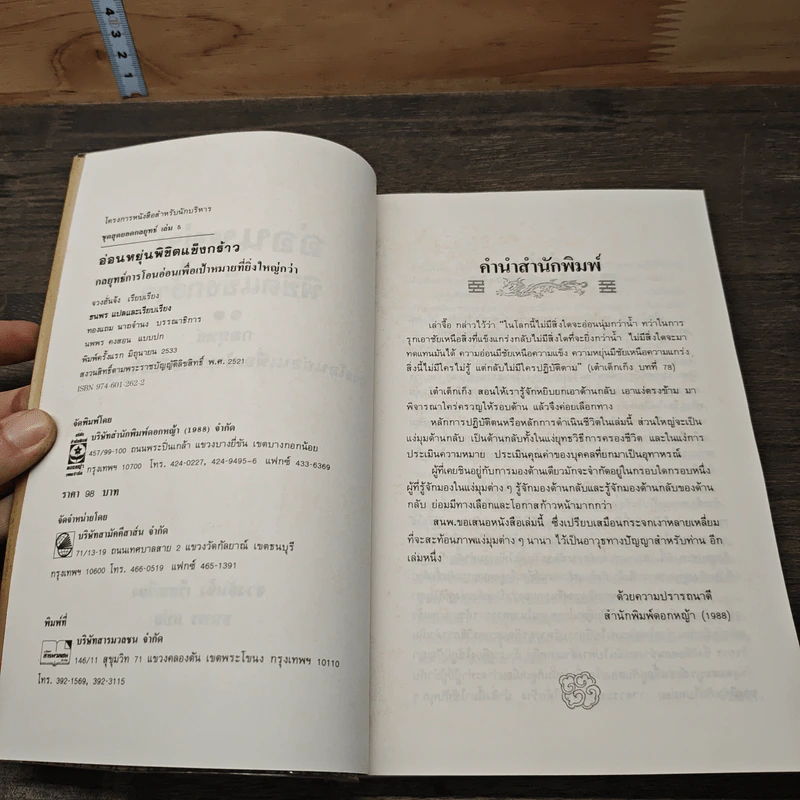 โครงการหนังสือสำหรับนักบริหาร
ชุดสุดยอดกลยุทธ์ เล่ม 5
อ่อนหยุ่นพิชิตแข็งกร้าว
กลยุทธ์การโอนอ่อนเพื่อเป้าหมายที่ยิ่งใหญ่กว่า
จวงสั่นจ้ง เรียบเรียง
ธนพร แปลและเรียบเรียง
ทองแถม นาถจำนง บรรณาธิการ
นพพร คงสอน แบบปก
พิมพ์ครั้งแรก มิถุนายน 2533
สงวนลิขสิทธิ์ตามพระราชบัญญัติลิขสิทธิ์ พ.ศ. 2521
ISBN 974-601-262-2
จัดพิมพ์โดย
บริษัทสำนักพิมพ์ดอกหญ้า (1988) จำกัด
457/99-100 ถนนพระปิ่นเกล้า แขวงบางยี่ขัน เขตบางกอกน้อย
กรุงเทพฯ 10700 โทร. 424-0227, 424-9495-6 แฟกซ์ 433-6369
ราคา 98 บาท
จัดจำหน่ายโดย
บริษัทสามัคคีสาส์น จำกัด
71/13-19 ถนนเทศบาลสาย 2 แขวงวัดกัลยาณ์ เขตธนบุรี
กรุงเทพฯ 10600 โทร. 466-0519 แฟกซ์ 465-1391
พิมพ์ที่
บริษัทสารมวลชน จำกัด
146/11 สุขุมวิท 71 แขวงคลองตัน เขตพระโขนง กรุงเทพฯ 10110
โทร. 392-1569, 392-3115
คำนำสำนักพิมพ์
เล่าจื๊อ กล่าวไว้ว่า "ในโลกนี้ไม่มีสิ่งใดจะอ่อนนุ่มกว่าน้ำ ทว่าในการ
รุกเอาชัยเหนือสิ่งที่แข็งแกร่งกลับไม่มีสิ่งใดที่จะยิ่งกว่าน้ำ ไม่มีสิ่งใดจะมา
ทดแทนมันได้ ความอ่อนมีชัยเหนือความแข็ง ความหยุ่นมีชัยเหนือความแกร่ง
สิ่งนี้ไม่มีใครไม่รู้ แต่กลับไม่มีใครปฏิบัติตาม" (เต๋าเต็กเก็ง บทที่ 78)
เต๋าเต็กเก็ง สอนให้เรารู้จักหยิบยกเอาด้านกลับ เอาแง่ตรงข้าม มา
พิจารณาใคร่ครวญให้รอบด้าน แล้วจึงค่อยเลือกทาง
หลักการปฏิบัติตนหรือหลักการดำเนินชีวิตในเล่มนี้ ส่วนใหญ่จะเป็น
แง่มุมด้านกลับ เป็นด้านกลับทั้งในแง่ยุทธวิธีการครองชีวิต และในแง่การ
ประเมินความหมาย ประเมินคุณค่าของบุคคลที่ยกมาเป็นอุทาหรณ์
ผู้ที่เคยชินอยู่กับการมองด้านเดียวมักจะจำกัดอยู่ในกรอบใดกรอบหนึ่ง
ผู้ที่รู้จักมองในแง่มุมต่าง ๆ รู้จักมองด้านกลับและรู้จักมองด้านกลับของด้าน
กลับ ย่อมมีทางเลือกและโอกาสก้าวหน้ามากกว่า
สนพ.ขอเสนอหนังสือเล่มนี้ ซึ่งเปรียบเสมือนกระจกเงาหลายเหลี่ยม
ที่จะสะท้อนภาพแง่มุมต่าง ๆ นานา ไว้เป็นอาวุธทางปัญญาสำหรับท่าน อีก
เล่มหนึ่ง
ด้วยความปรารถนาดี
สำนักพิมพ์ดอกหญ้า (1988)